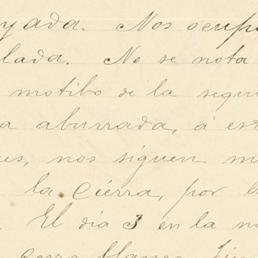 yada. Nos ocup
lada. No se nota
motibo de la sequ
a aburrada, á es
es, nos siguen m
la Cierra, por l
. El dia 3 en la n